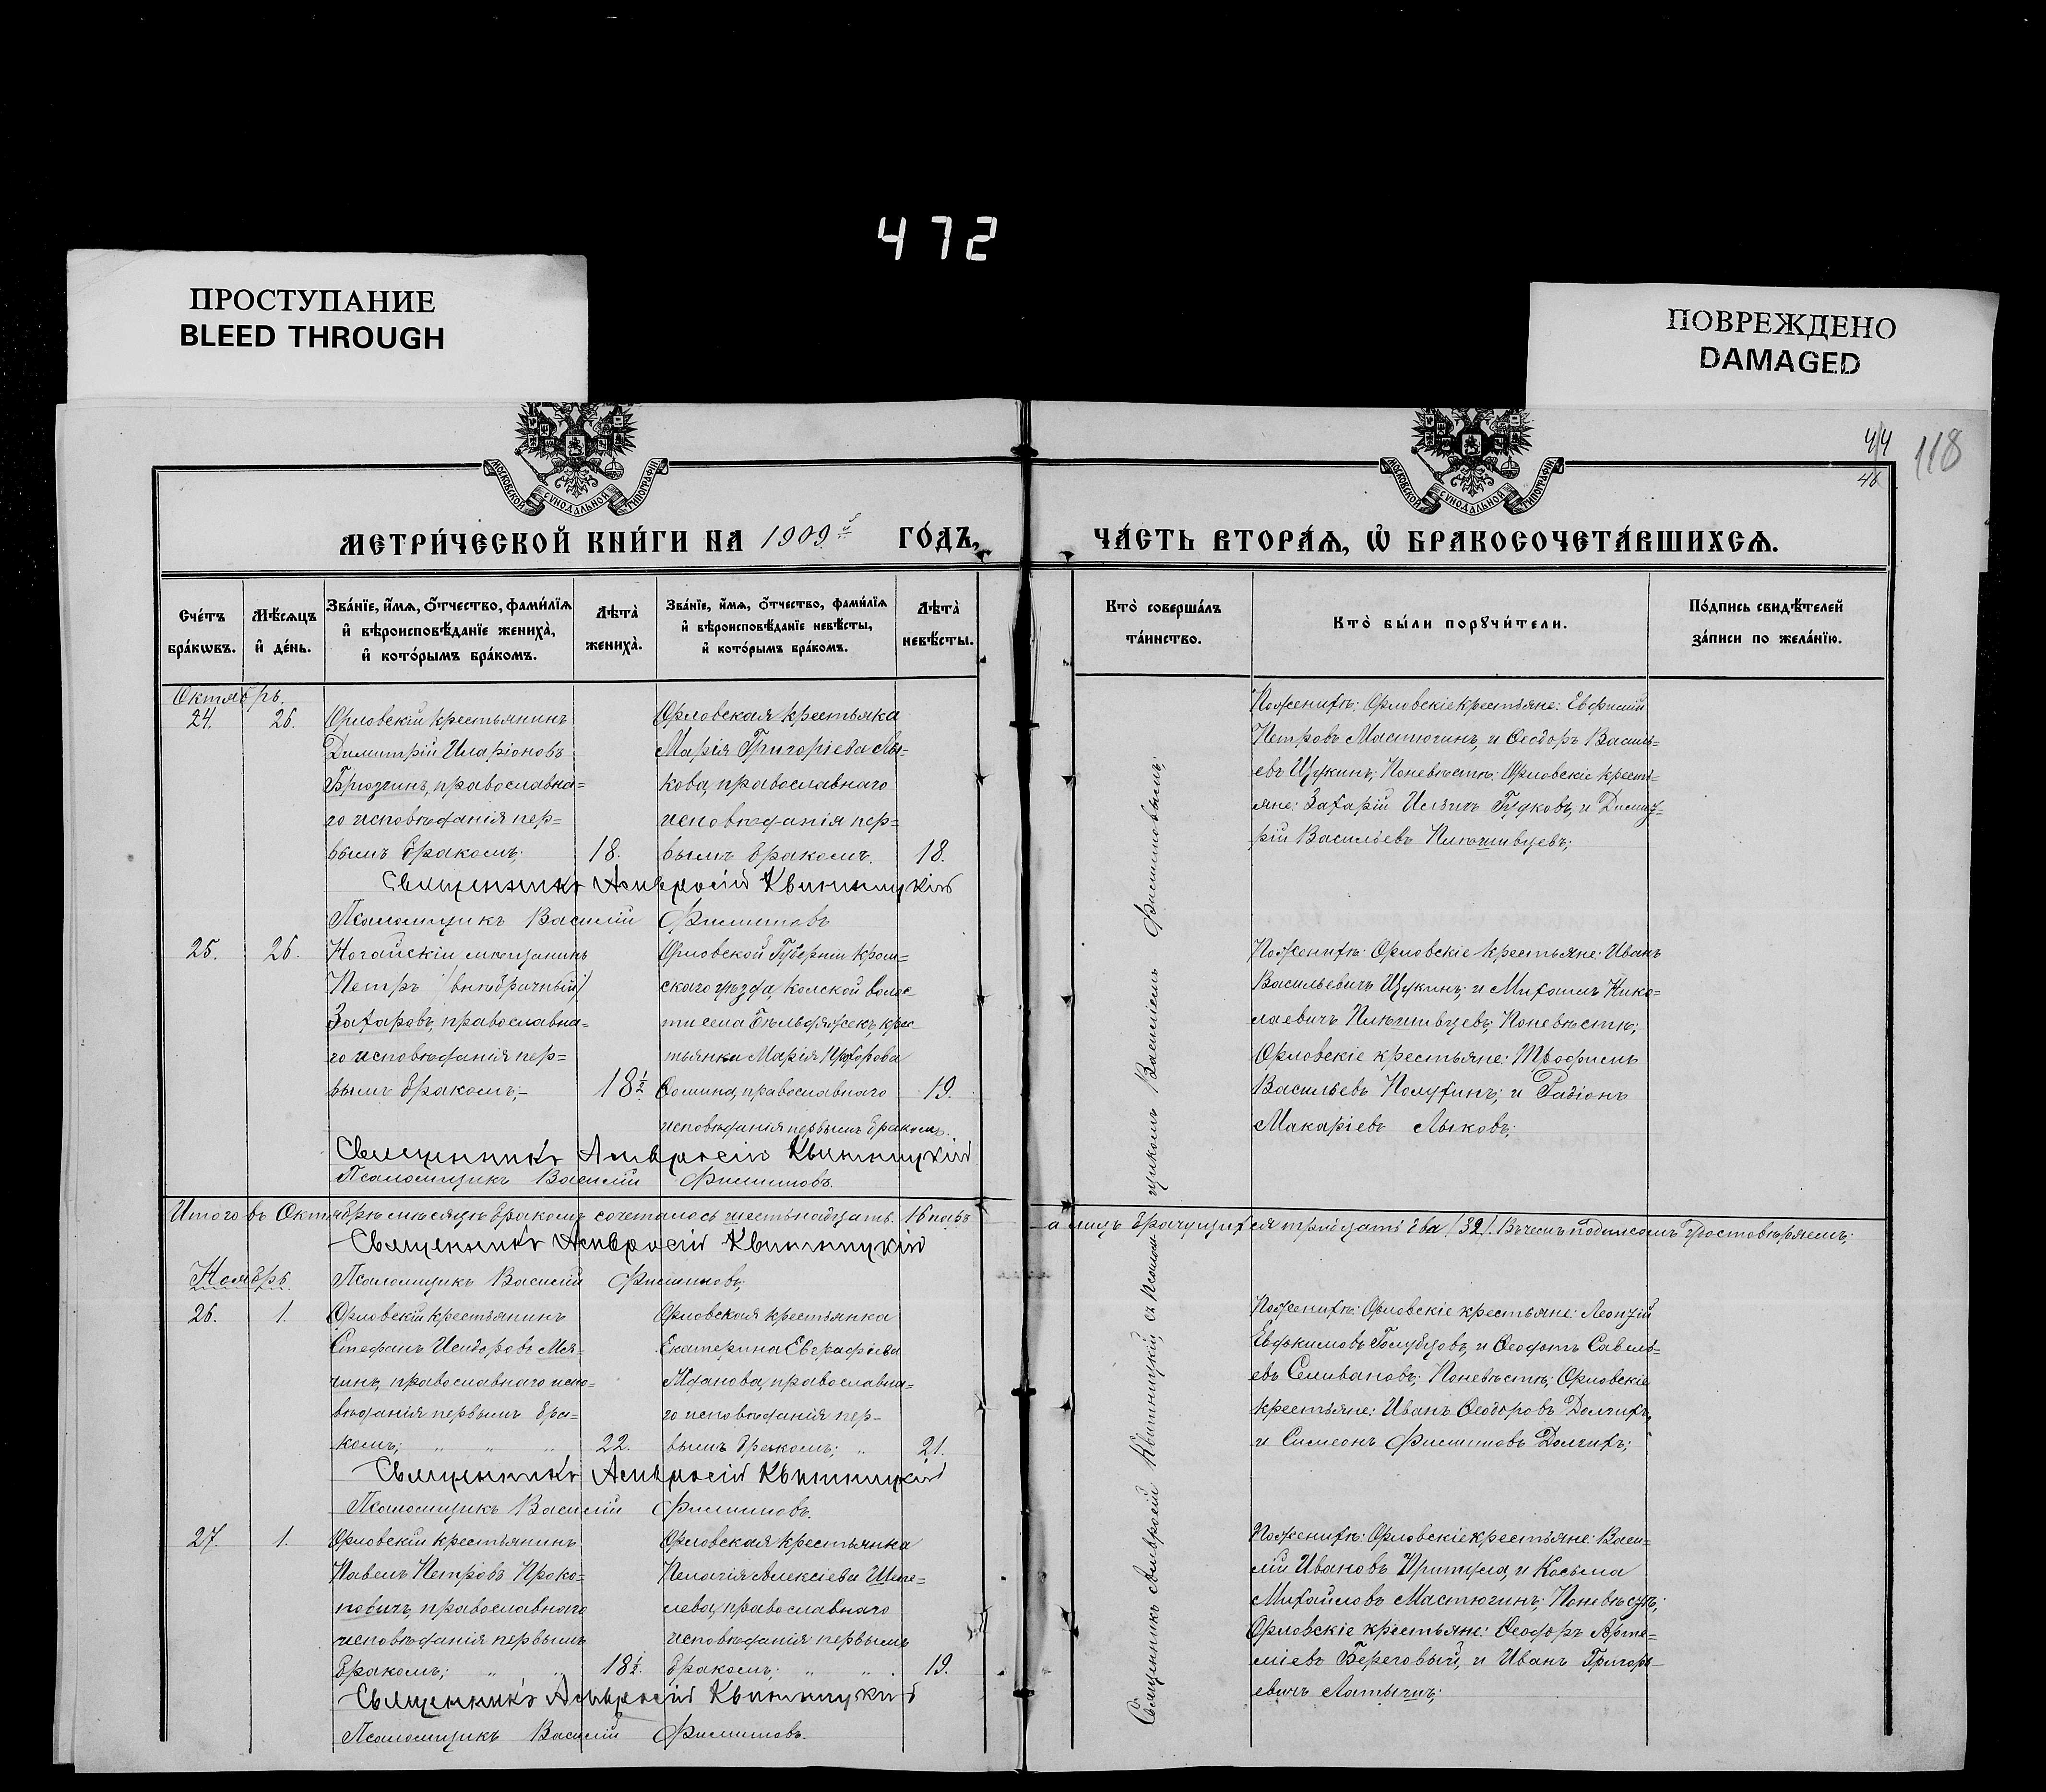 472
ПРОСТУПАНИЕ
BLEED THROUGH
ПОВРЕЖДЕНО
DAMAGED
44
46
118
МОСКОВСКОЙ СѴНОДАЛЬНОЙ ТИПОГРАФІИ
МОСКОВСКОЙ СѴНОДАЛЬНОЙ ТИПОГРАФІИ
МЕТРИ́ЧЕСКОЙ КНИ́ГИ НА 1909й ГО́ДЪ,
ЧА́СТЬ ВТОРА́Ѧ, Ѡ҆ БРАКОСОЧЕТА́ВШИХСѦ.
Сче́тъ
бра́кѡвъ.
Мѣ́сѧцъ
и҆ де́нь.
Зва́нїе, и҆́мѧ, ѻ҆́тчество, фами́лїѧ
и҆ вѣроисповѣ́данїе жениха̀,
и҆ кото́рымъ бра́комъ.
Лѣта̀
жениха̀.
Зва́нїе, и҆́мѧ, ѻ҆́тчество, фами́лїѧ
и҆ вѣроисповѣ́данїе невѣ́сты,
и҆ кото́рымъ бра́комъ.
Лѣта̀
невѣ́сты.
Кто̀ соверша́лъ
та́инство.
Кто̀ бы́ли порꙋчи́тели.
По́дпись свидѣ́телей
за́писи по жела́нїю.
Октябрь.
24.
26.
Орловскій крестьянинъ
Димитрій Иларіоновъ
Брюзгинъ, православна=
го исповѣданія пер=
вымъ бракомъ;
18.
Орловская крестьянка
Марія Григоріева Лы=
кова, православнаго
исповѣданія пер=
вымъ бракомъ.
18.
Поженихѣ: Орловскіе крестьяне: Евфимій
Петровъ Мастюгинъ, и Ѳеодоръ Василь=
евъ Щукинъ; Поневѣстѣ: Орловскіе кресть=
яне: Захарій Ильичъ Гудковъ, и Димит=
рій Васильевъ
Священникъ Амвросій Квитницкій
Псаломщикъ Василій Филипповъ
25.
26.
Ногайскій мѣщанинъ
Петръ (внѣбрачный)
Захаровъ, православна=
го исповѣданія пер=
вымъ бракомъ;-
18½
Орловской Губерніи Кром=
скаго уѣзда, волос=
ти села крес=
тьянка Марія Прохорова
Ѳомина, православнаго
исповѣданія первымъ бракомъ.
19.
Поженихѣ: Орловскіе крестьяне: Иванъ
Васильевичъ Щукинъ; и Михаилъ Нико=
лаевичъ Поневѣстѣ;
Орловскіе крестьяне:
Васильевъ Полухинъ; и Радіонъ
Макаріевъ Лыковъ;
Священникъ Амвросій Квитницкій
Псаломщикъ Василій Филипповъ.
Итого въ Октябрѣ мѣсяцѣ бракомъ сочеталось шестьнадцать. 16 паръ
а лицъ брачущихся тридцать два (32). Въ чемъ подписомъ удостовѣряемъ;
Священникъ Амвросій Квитницкій
Псаломщикъ Василій Филипповъ;
Ноябрь.
26.
1.
Орловскій крестьянинъ
Стефанъ Исидоровъ Мя=
чинъ, православнаго испо=
вѣданія первымъ бра=
комъ; " " "
22.
Орловская крестьянка
Екатерина Евграфіева
Жданова, православна=
го исповѣданія пер=
вымъ бракомъ; "
21.
Поженихѣ: Орловскіе крестьяне: Леонтій
Евдокимовъ Голубцовъ, и Ѳеодотъ Савель=
евъ Селивановъ; Поневѣстѣ; Орловскіе
крестьяне: Иванъ Ѳеодоровъ Долгихъ,
и Симеонъ Филипповъ Долгихъ;
Священникъ Амвросій Квитницкій
Псаломщикъ Василій Филипповъ.
27.
1.
Орловскій крестьянинъ
Павелъ Петровъ Проко=
повичъ, православнаго
исповѣданія первымъ
бракомъ; " "
18½.
Орловская крестьянка
Пелагія Алексіева Шме=
лева, православнаго
исповѣданія первымъ
бракомъ; " " .
19.
Поженихѣ: Орловскіе крестьяне: Васи=
лій Ивановъ Притула, и Косьма
Михайловъ Мастюгинъ; Поневѣстѣ;
Орловскіе крестьяне: Ѳеодоръ Арте=
міевъ Береговый, и Иванъ Григорь=
евичъ Латычинъ;
Священникъ Амвросій Квитницкій
Псаломщикъ Василій Филипповъ.
Священникъ Амвросій Квитницкій съ Псаломщикомъ Василіемъ Филипповымъ;